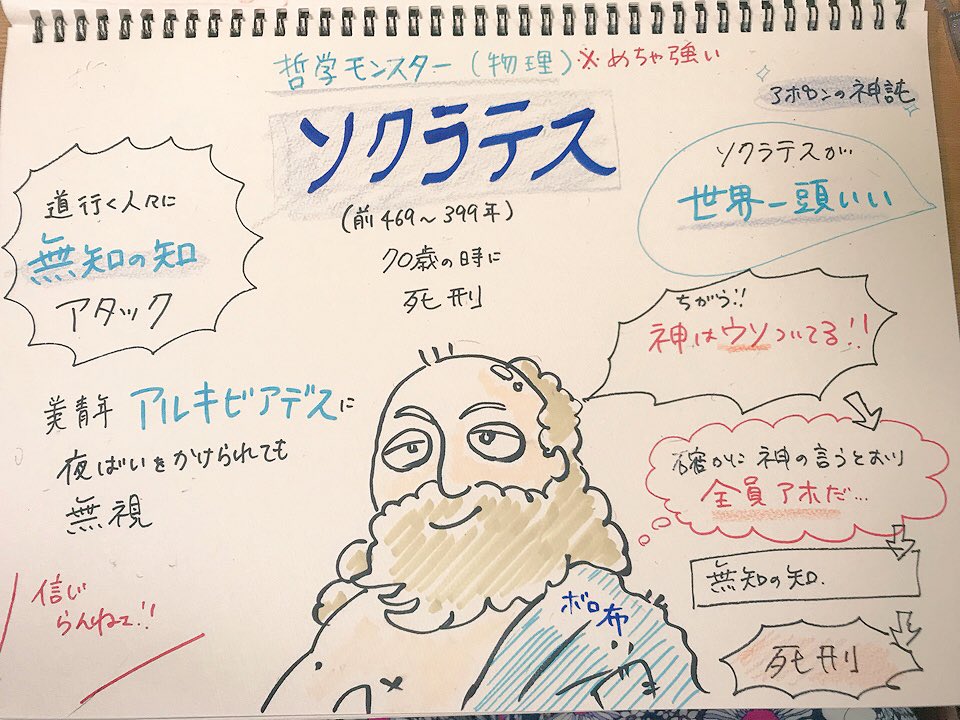 哲学モンスター(物理)※めちゃ強い
ソクラテス
(前469~399年)
70歳の時に
死刑
道行く人々に
無知の知
アタック
美青年 アルキビアデスに
夜ばいをかけられても
無視
信じ
らんねェ!!
アポロンの神託
ソクラテスが
世界一頭いい
ちがう!!
神はウソついてる!!
確かに神の言うとおり
全員アホだ…
無知の知.
死刑
ボロ布